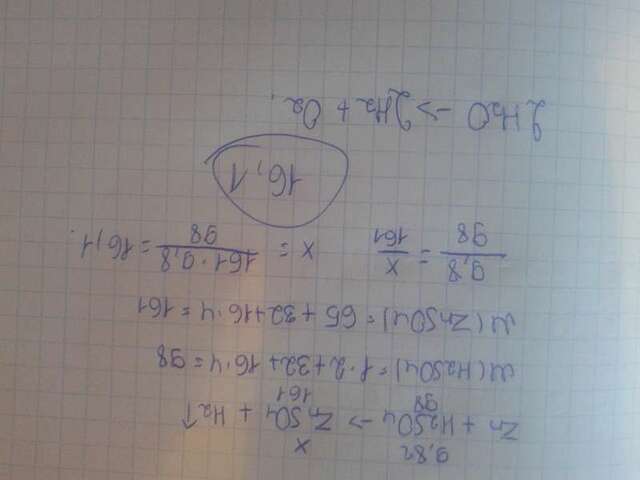 9,8г x
Zn + H2SO4 -> ZnSO4 + H2↑
98 161
M(H2SO4) = 1·2+32+16·4 = 98
M(ZnSO4) = 65 + 32+16·4 = 161
9,8/98 = x/161 x = 161·9,8/98 = 16,1.
16,1
2H2O -> 2H2 + O2.